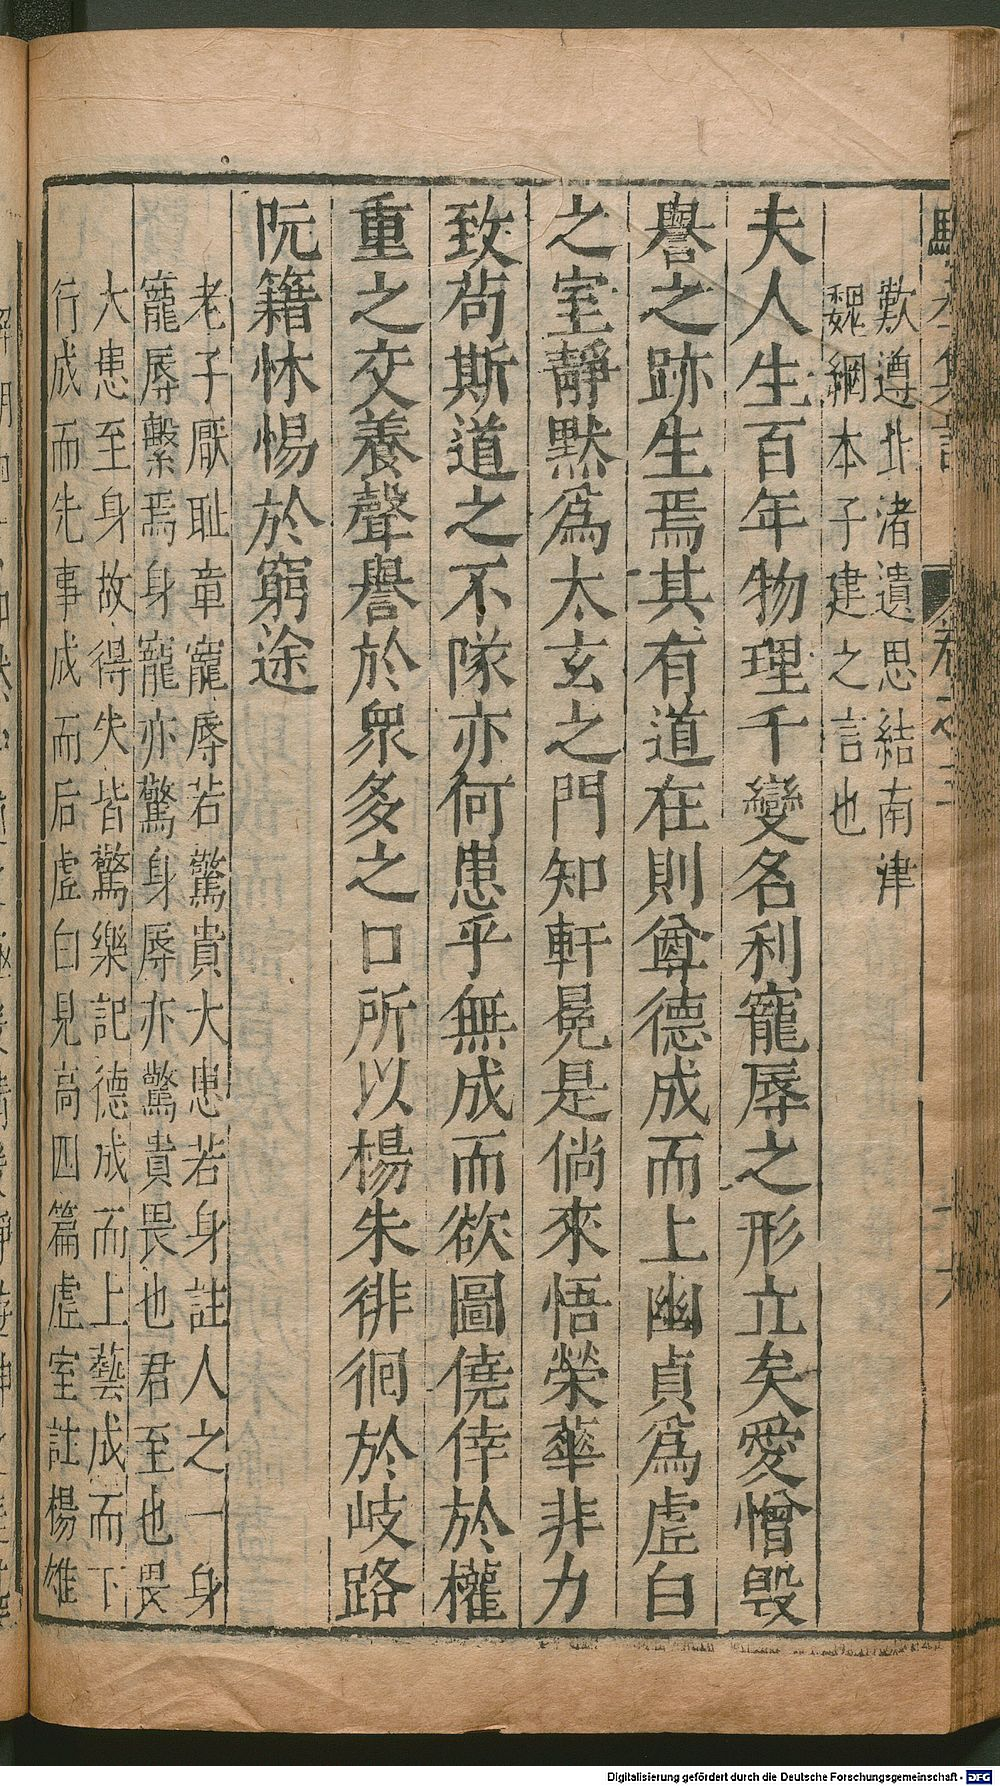 歎遵北渚遺思結南津
魏綱本子建之言也
夫人生百年物理千變名利寵辱之形立矣愛憎毀
譽之跡生焉其有道在則尊德成而上幽貞爲虛白
之室靜默爲太玄之門知軒冕是倘來悟榮華非力
致苟斯道之不隊亦何患乎無成而欲圖僥倖於權
重之交養聲譽於衆多之口所以楊朱徘徊於岐路
阮籍怵惕於窮途
老子厭耻章寵辱若驚貴大患若身註人之一身
寵辱繫焉身寵亦驚身辱亦驚貴畏也君至也畏
大患至身故得失皆驚樂記德成而上藝成而下
行成而先事成而后虛白見高四篇虛室註楊雄
Digitalisierung gefördert durch die Deutsche Forschungsgemeinschaft - DFG